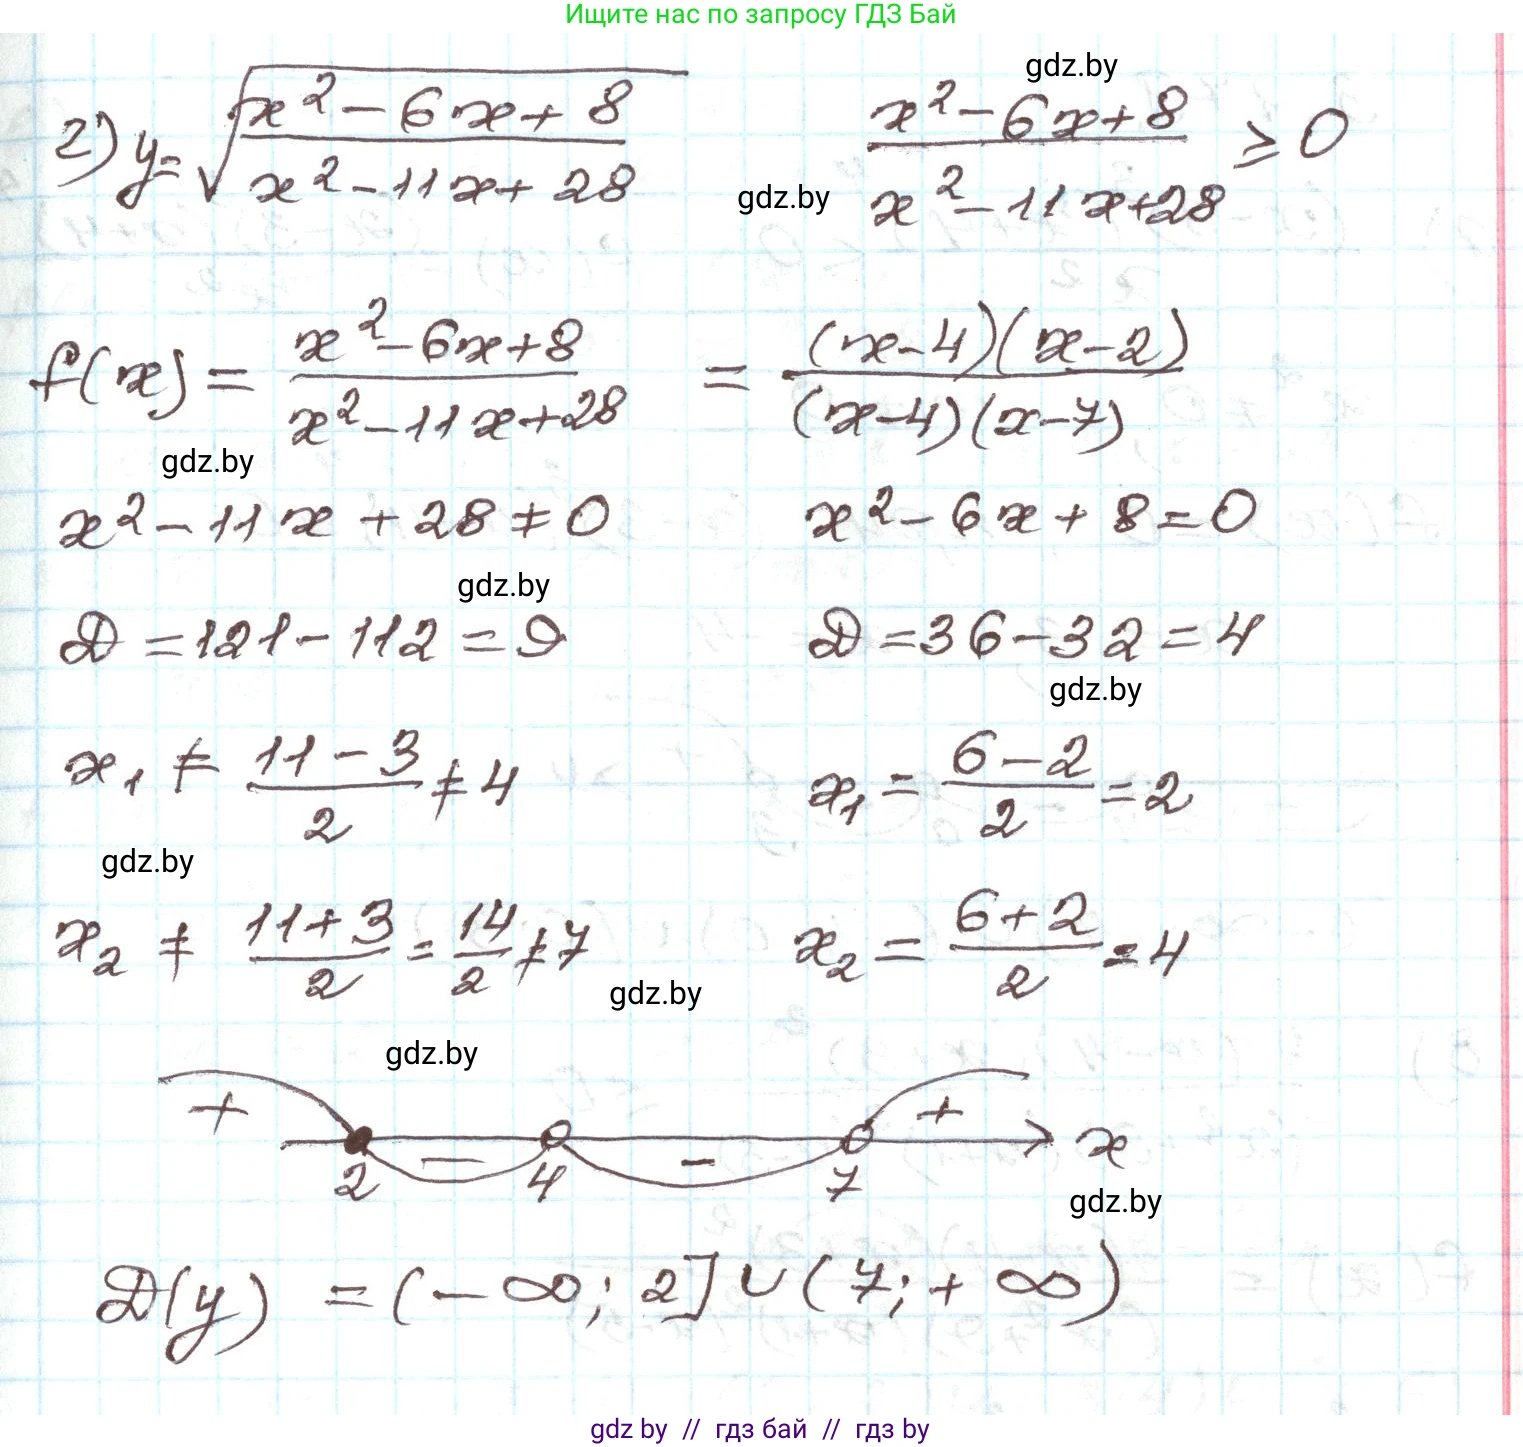 Ищите нас по запросу ГДЗ Бай
gdz.by
2) y = √((x² - 6x + 8)/(x² - 11x + 28))    (x² - 6x + 8)/(x² - 11x + 28) ≥ 0
gdz.by
f(x) = (x² - 6x + 8)/(x² - 11x + 28) = ((x - 4)(x - 2))/((x - 4)(x - 7))
gdz.by
x² - 11x + 28 ≠ 0    x² - 6x + 8 = 0
gdz.by
D = 121 - 112 = 9    D = 36 - 32 = 4
gdz.by
x₁ ≠ (11 - 3)/2 ≠ 4    x₁ = (6 - 2)/2 = 2
gdz.by
x₂ ≠ (11 + 3)/2 = 14/2 ≠ 7    x₂ = (6 + 2)/2 = 4
gdz.by
gdz.by
+ - - + x
2 4 7
gdz.by
D(y) = (-∞; 2] ∪ (7; +∞)
gdz by // гдз бай // гдз by